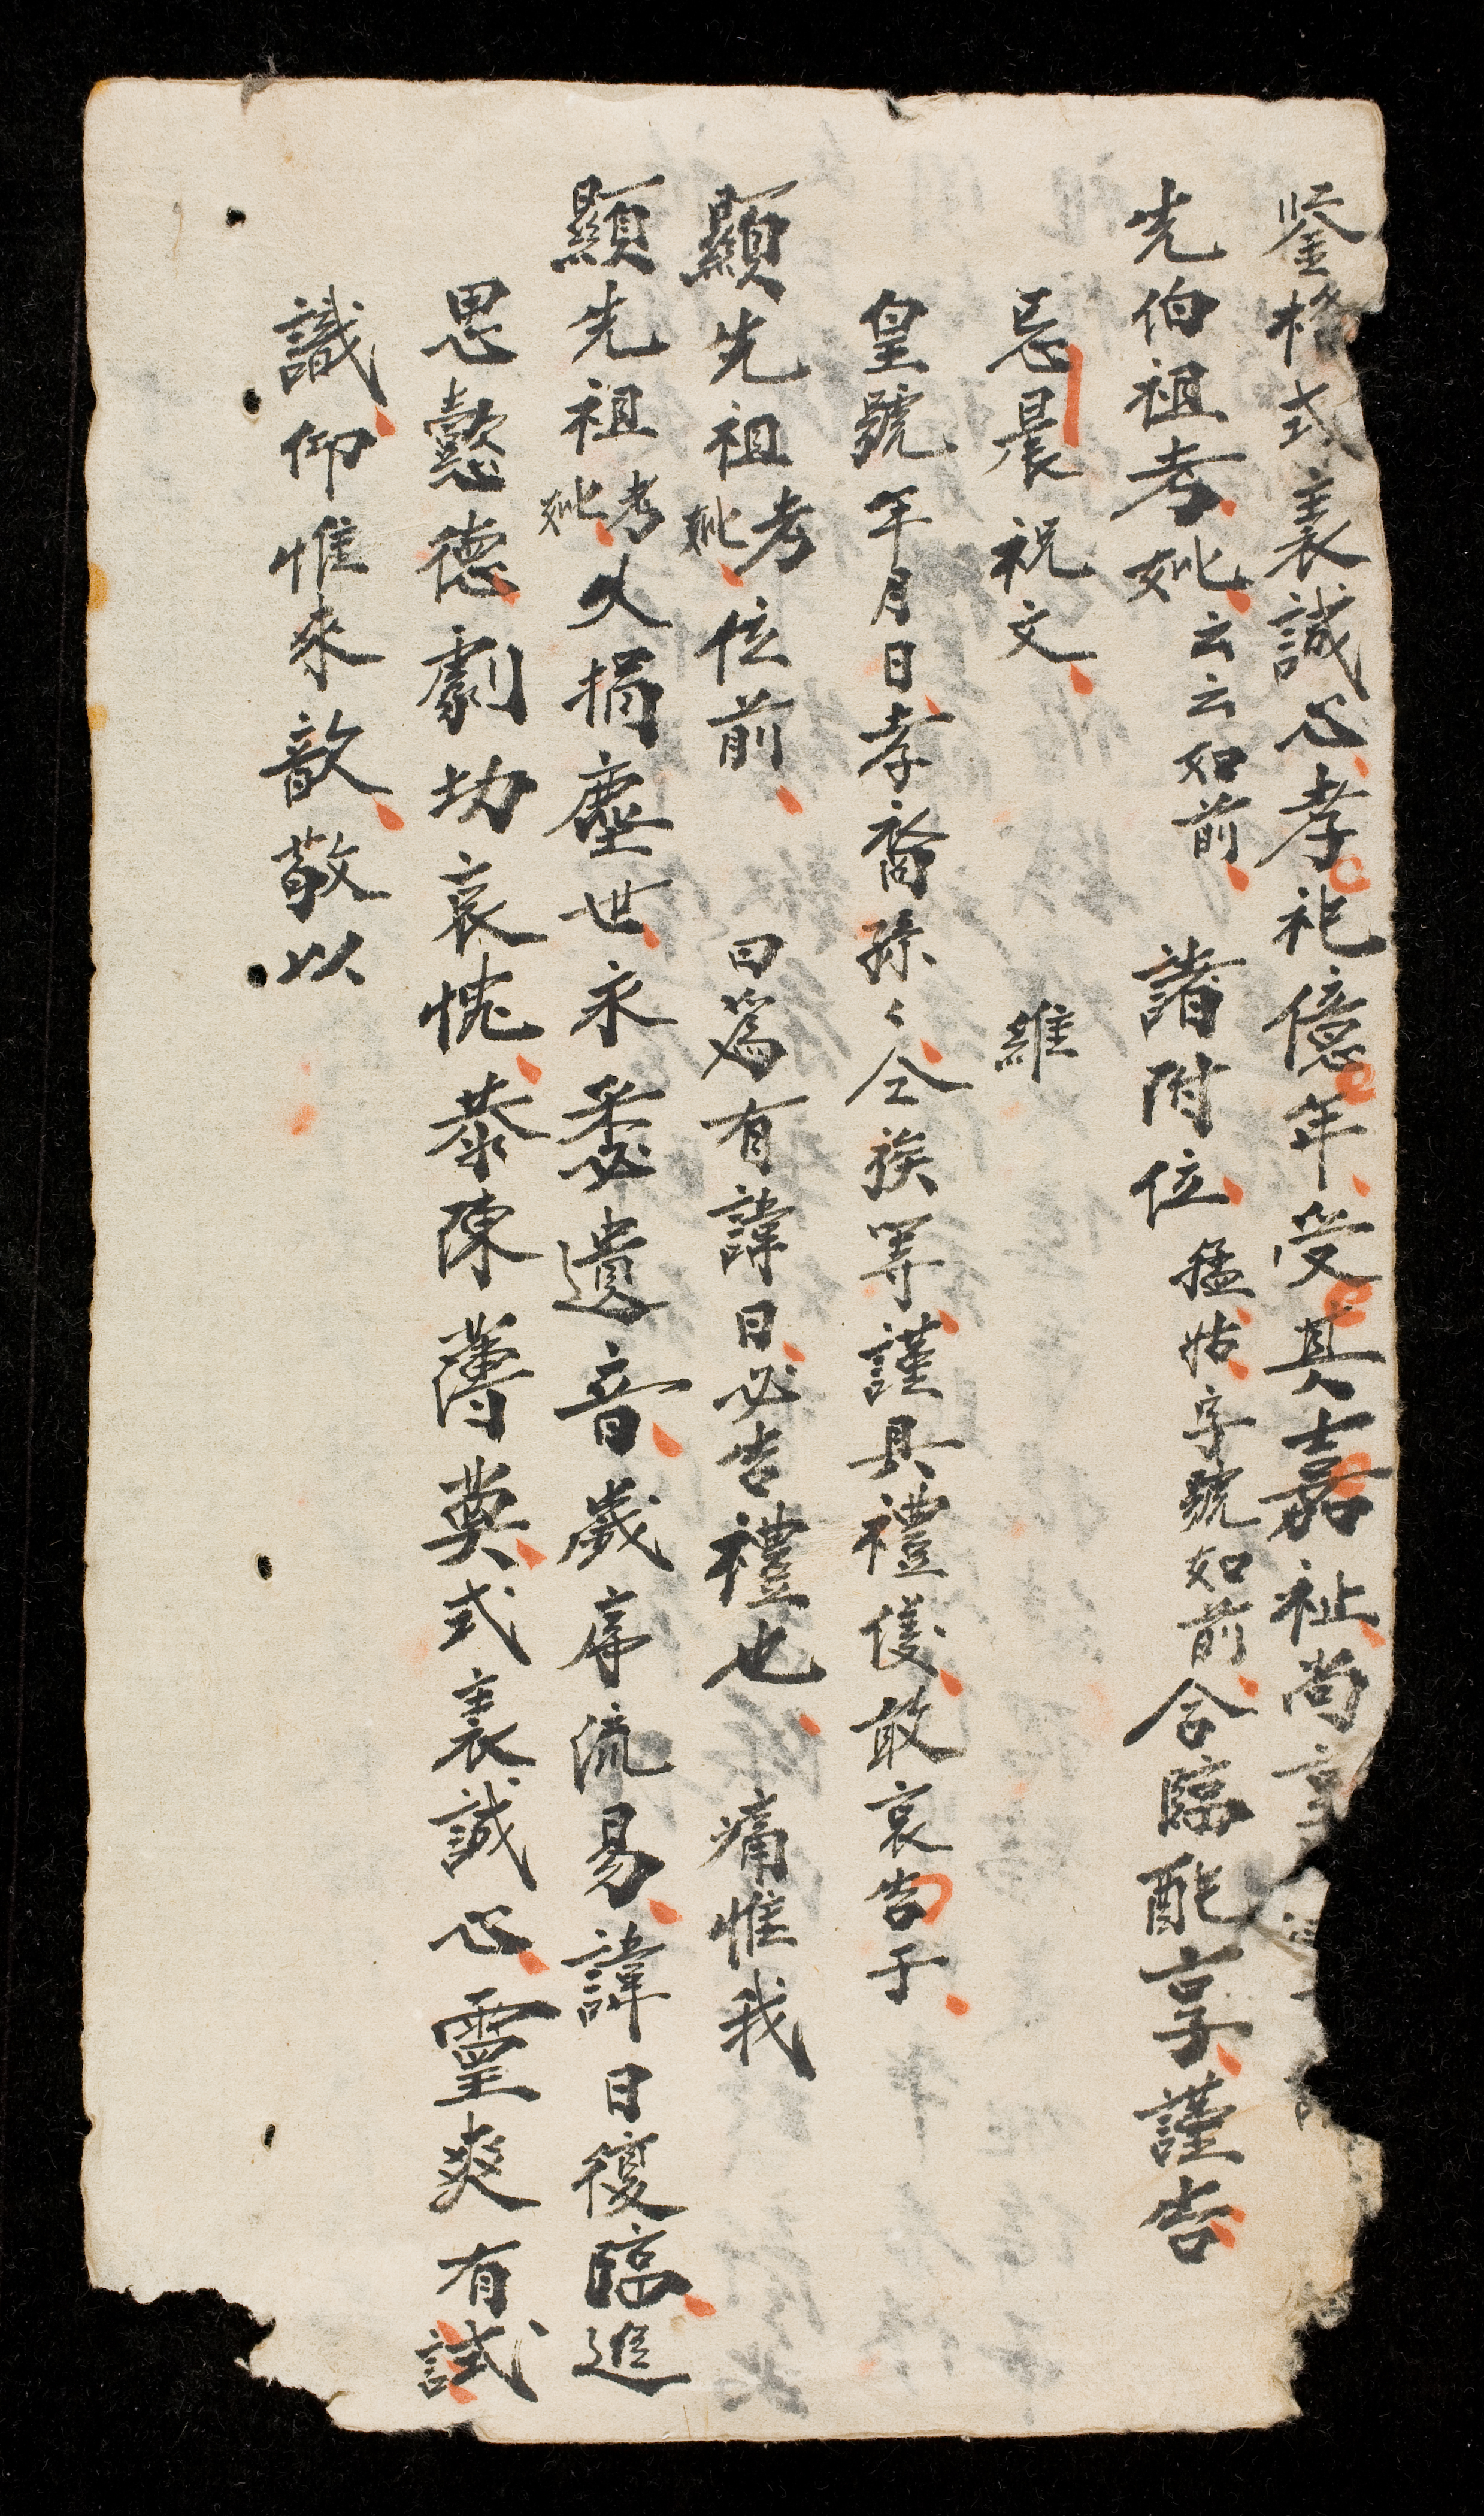 鉴格式衷誠心孝祀億年受其嘉祉尚享
先伯祖考妣云云如前 諸附位猛姑字號如前合臨配享謹告
忌晨祝文 維
皇號年月日孝裔孫〻仝族等謹具禮儀敢哀告于
顯先祖考妣位前 曰爲有諱日必告禮也 痛惟我
顯先祖考妣久捐塵世永秘遺音歲序流易諱日復臨進
思懿德劇切哀愧恭陳薄奠式衷誠心靈爽有試
識仰惟來歆敬以